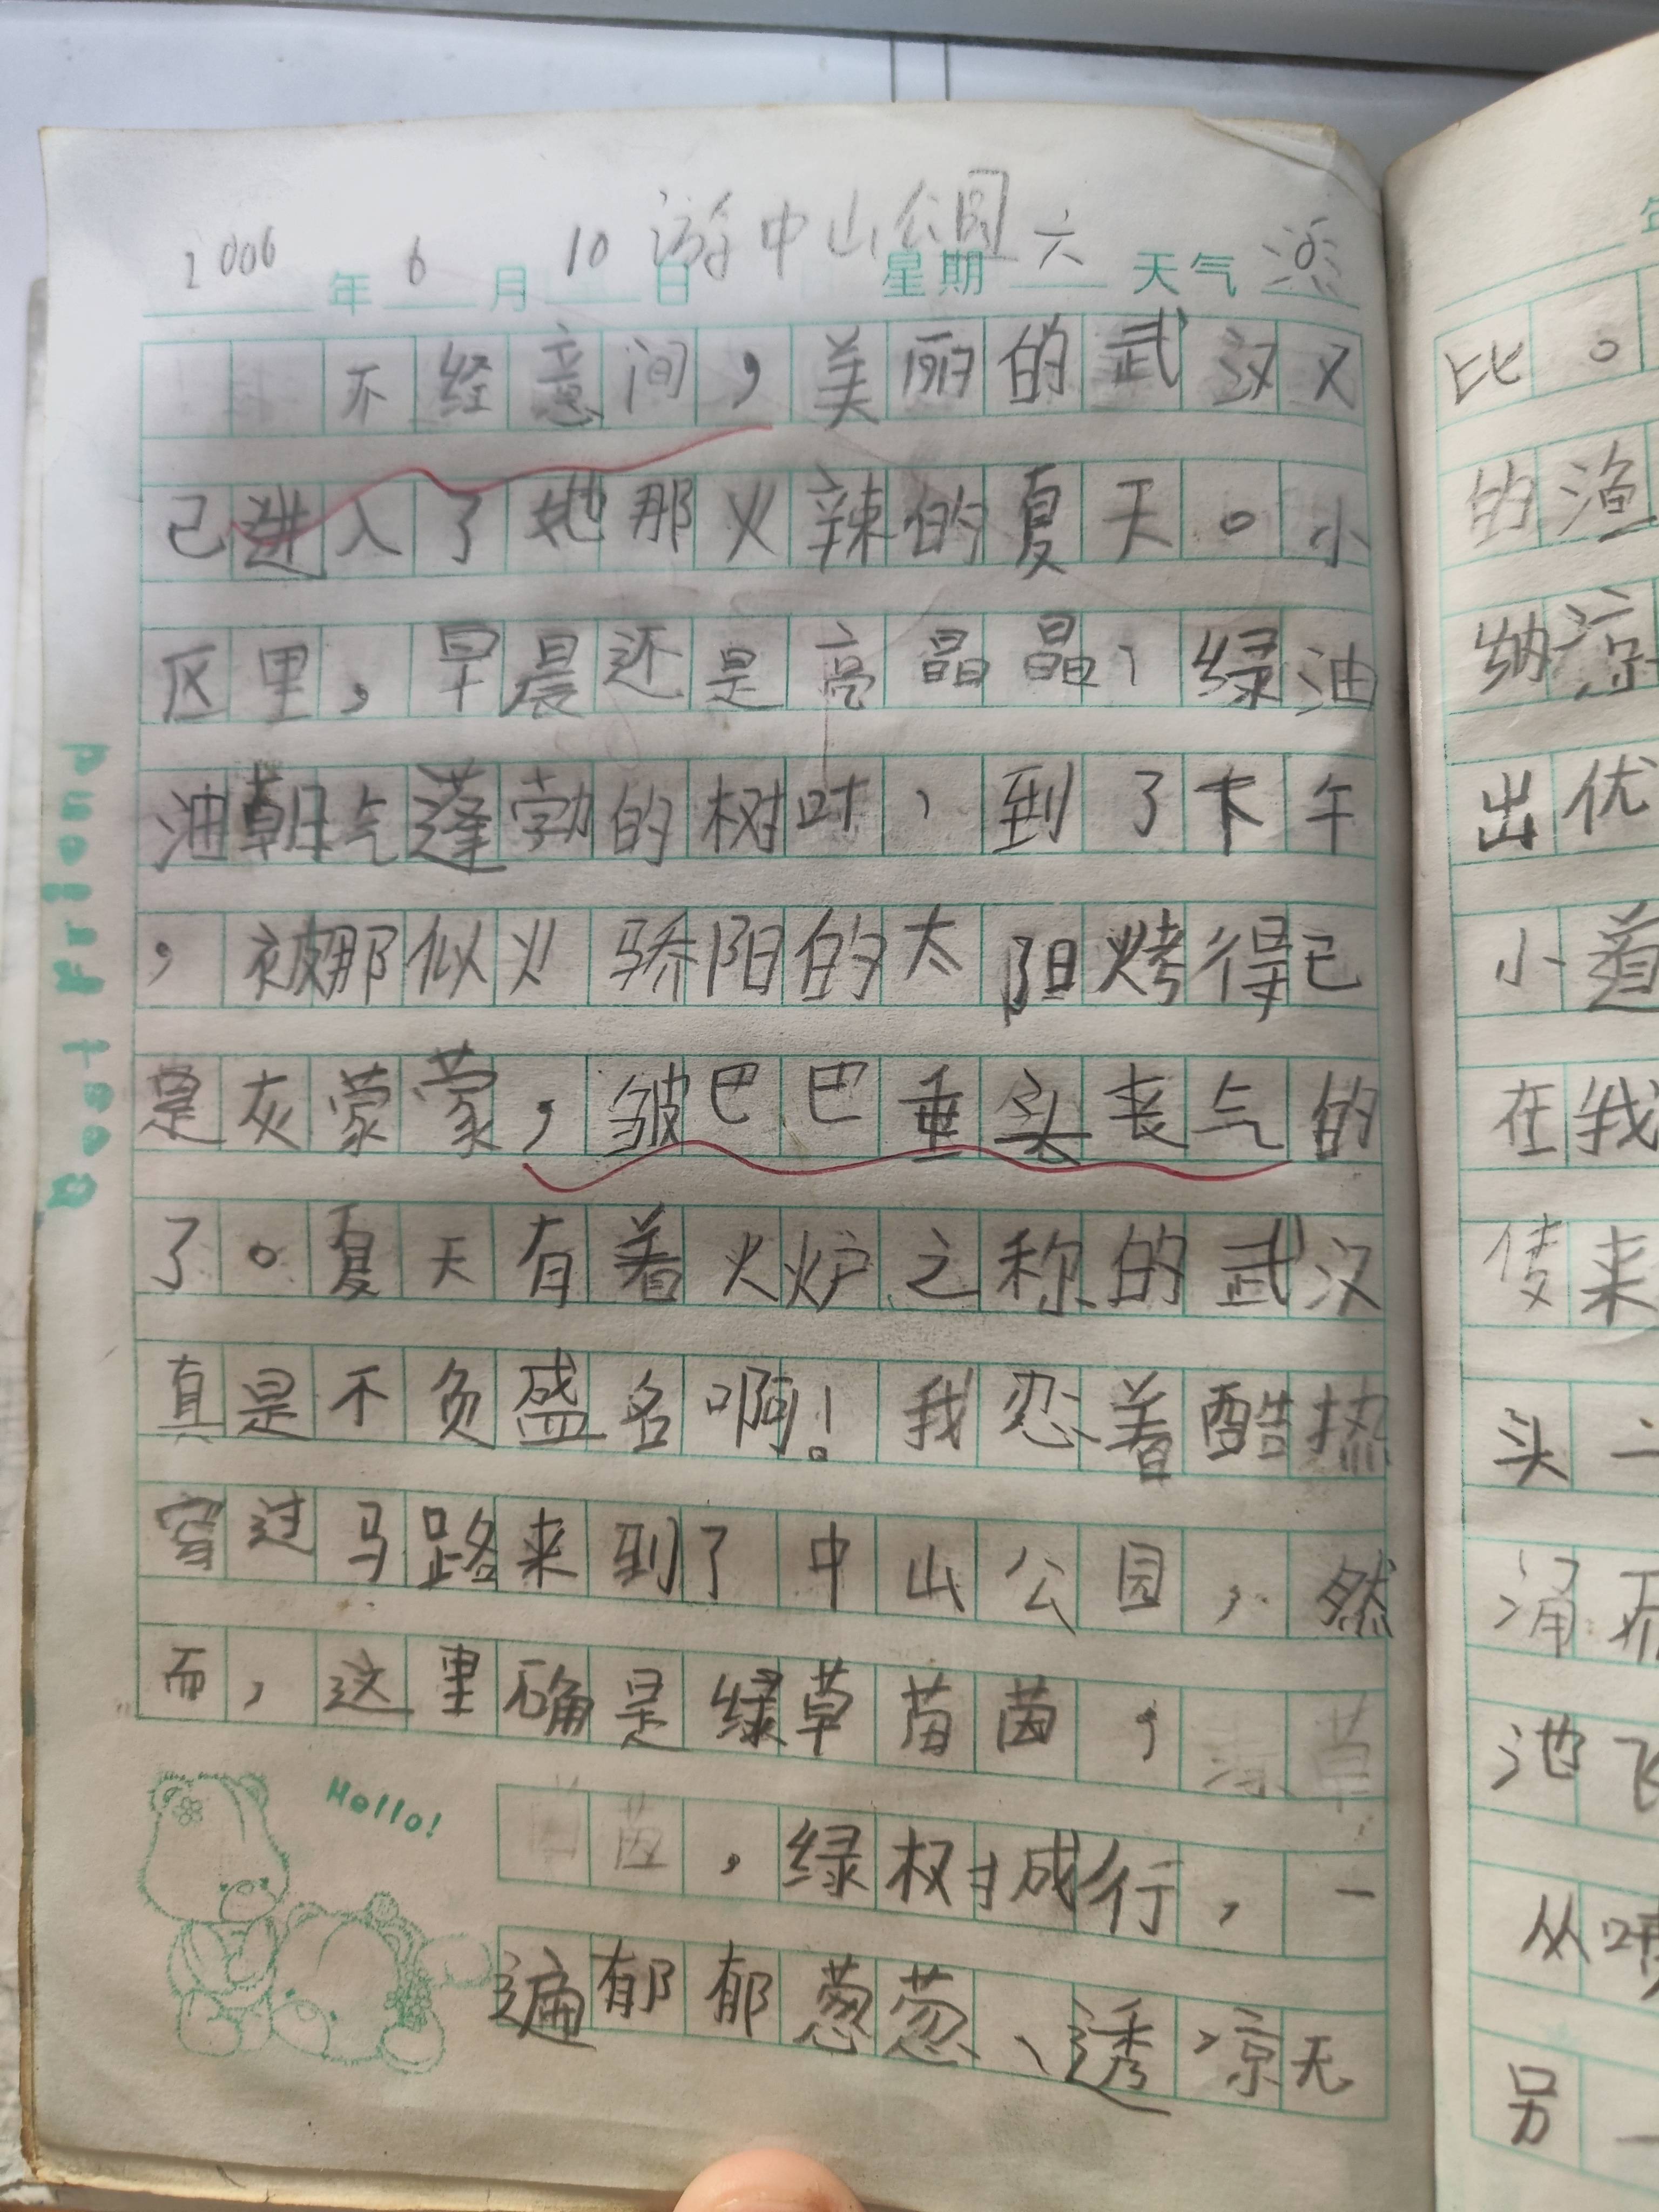 游中山公园
2006年6月10日 星期六 天气
不经意间，美丽的武汉又
己进入了她那火辣的夏天。小
区里，早晨还是亮晶晶、绿油
油朝气蓬勃的树叶、到了下午
，被那似火骄阳的太阳烤得已
是灰蒙蒙，皱巴巴垂头丧气的
了。夏天有着火炉之称的武汉
真是不负盛名啊！我忍着酷热
穿过马路来到了中山公园，然
而，这里确是绿草茵茵，
，绿树成行，一
遍郁郁葱葱、透凉无
Hello!
Best Friend
比。
的渔
纳凉
出优
小道
在我
传来
头一
涌
池飞
从喷
另一